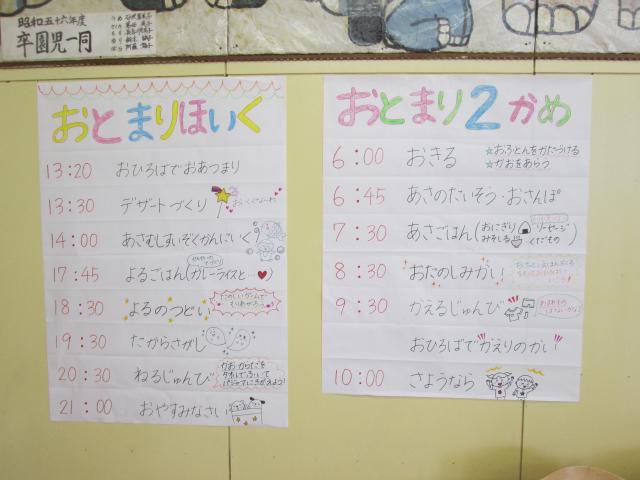 昭和五十六年度
卒園児一同
おとまりほいく
13:20 おひろばであつまり
13:30 デザートづくり
14:00 あさむしすいぞくかんにいく
17:45 よるごはん(カレーライスと…♥)
18:30 よるのつどい
19:30 たからさがし
20:30 ねるじゅんび
かお・からだを
タオルでふいて
パジャマにきがえよう!
21:00 おやすみなさい
おとまり2かめ
6:00 おきる
☆おふとんをかたづける
☆かおをあらう
6:45 あさのたいそう・おさんぽ
7:30 あさごはん(おにぎり ソーセージ
みそしる くだもの)
8:30 おたのしみかい!
9:30 かえるじゅんび
おひろばでかえりのかい
10:00 さようなら